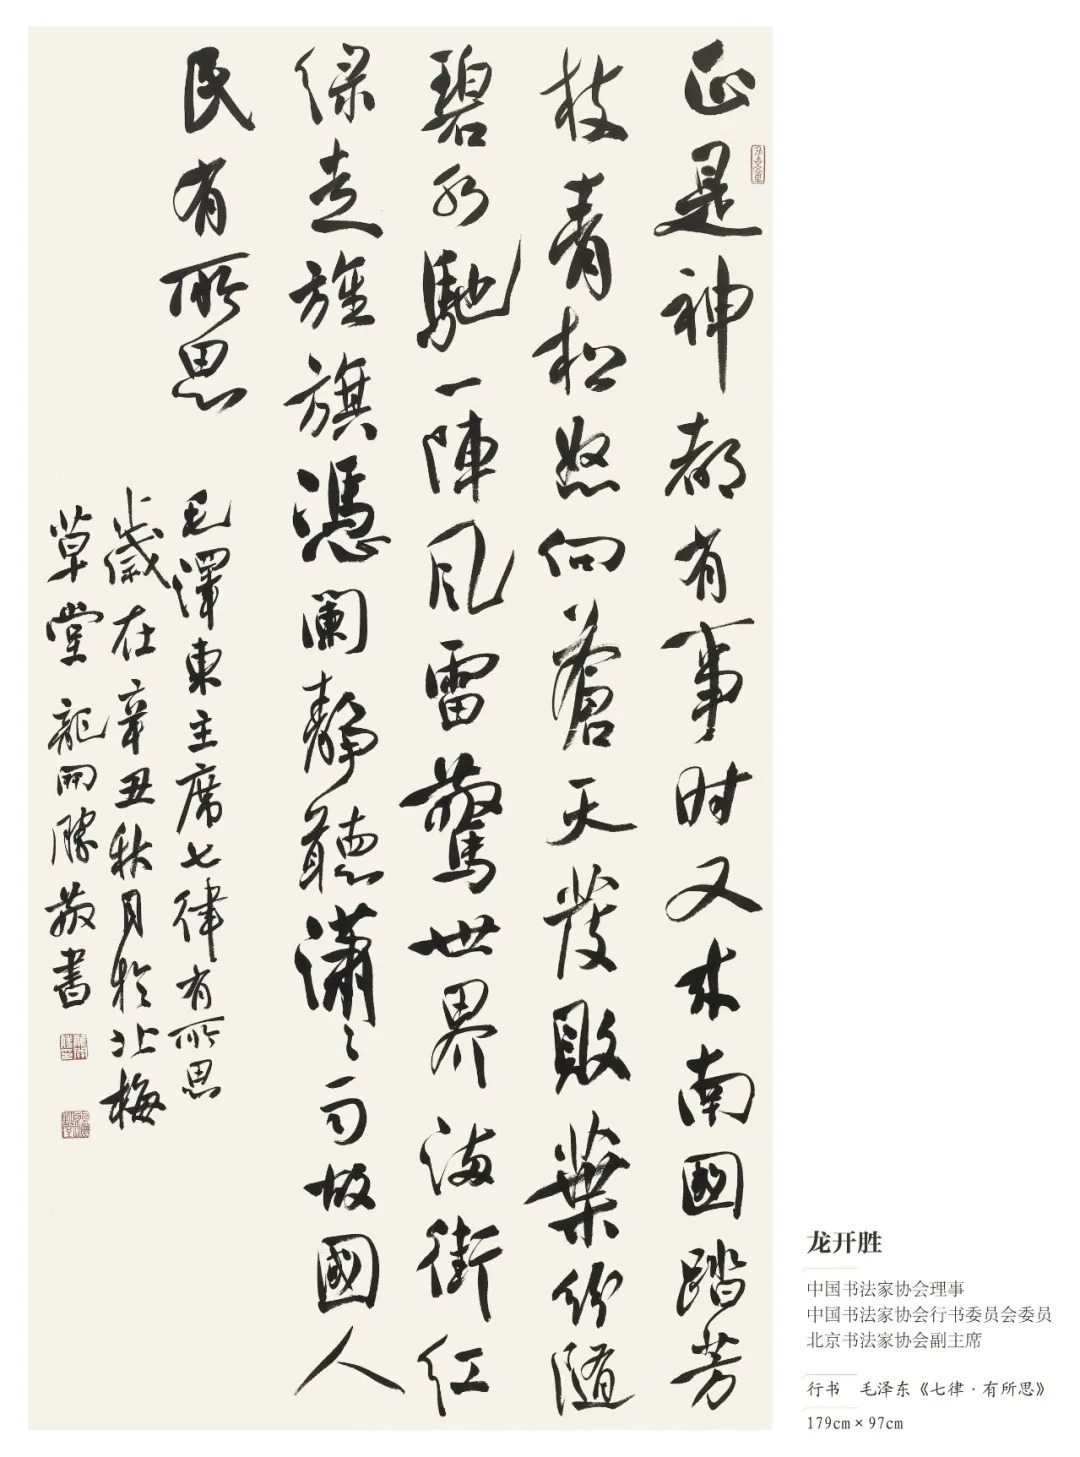 正是神都有事时又来南國踏芳
枝青松怒向蒼天發敗葉纷随
碧水馳一陣风雷驚世界满街红
绿走旌旗憑闌静聽潇〻雨故國人
民有所思
毛澤東主席七律有所思
歲在辛丑秋月於北梅
草堂龍開勝敬書
龙开胜
中国书法家协会理事
中国书法家协会行书委员会委员
北京书法家协会副主席
行书 毛泽东《七律·有所思》
179cm×97cm